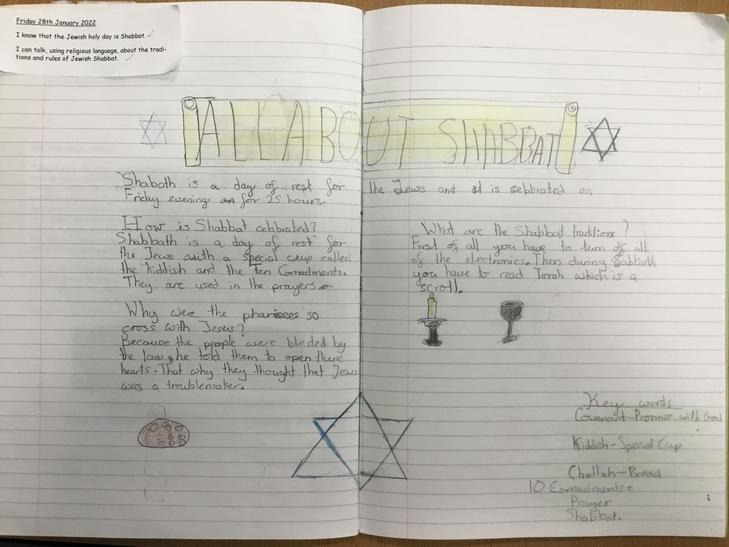 Friday 28th January 2022
I know that the Jewish holy day is Shabbat.
I can talk, using religious language, about the tradi-
tions and rules of Jewish Shabbat.
ALL ABOUT SHABBAT
Shabath is a day of rest for the Jews and it is selebrated on
Friday evening for 25 hours.
How is Shabbat celbrated?
Shabbath is a day of rest for
the Jews with a special cup called
the Kiddish and the Ten Comadments.
They are used in the prayers.
Why were the pharisees so
cross with Jesus?
Because the people were blinded by
the law, he told them to open there
hearts. That why they thought that Jesus
was a troublemaker.
What are the Shabbat traditions?
First of all you have to turn off all
of the electronics. Then during Sabbath
you have to read Torah which is a
scroll.
Key words
Covenant-Promise with God
Kiddish-Special Cup
Challah-Bread
10 Comadments
Prayer
Shabbat.